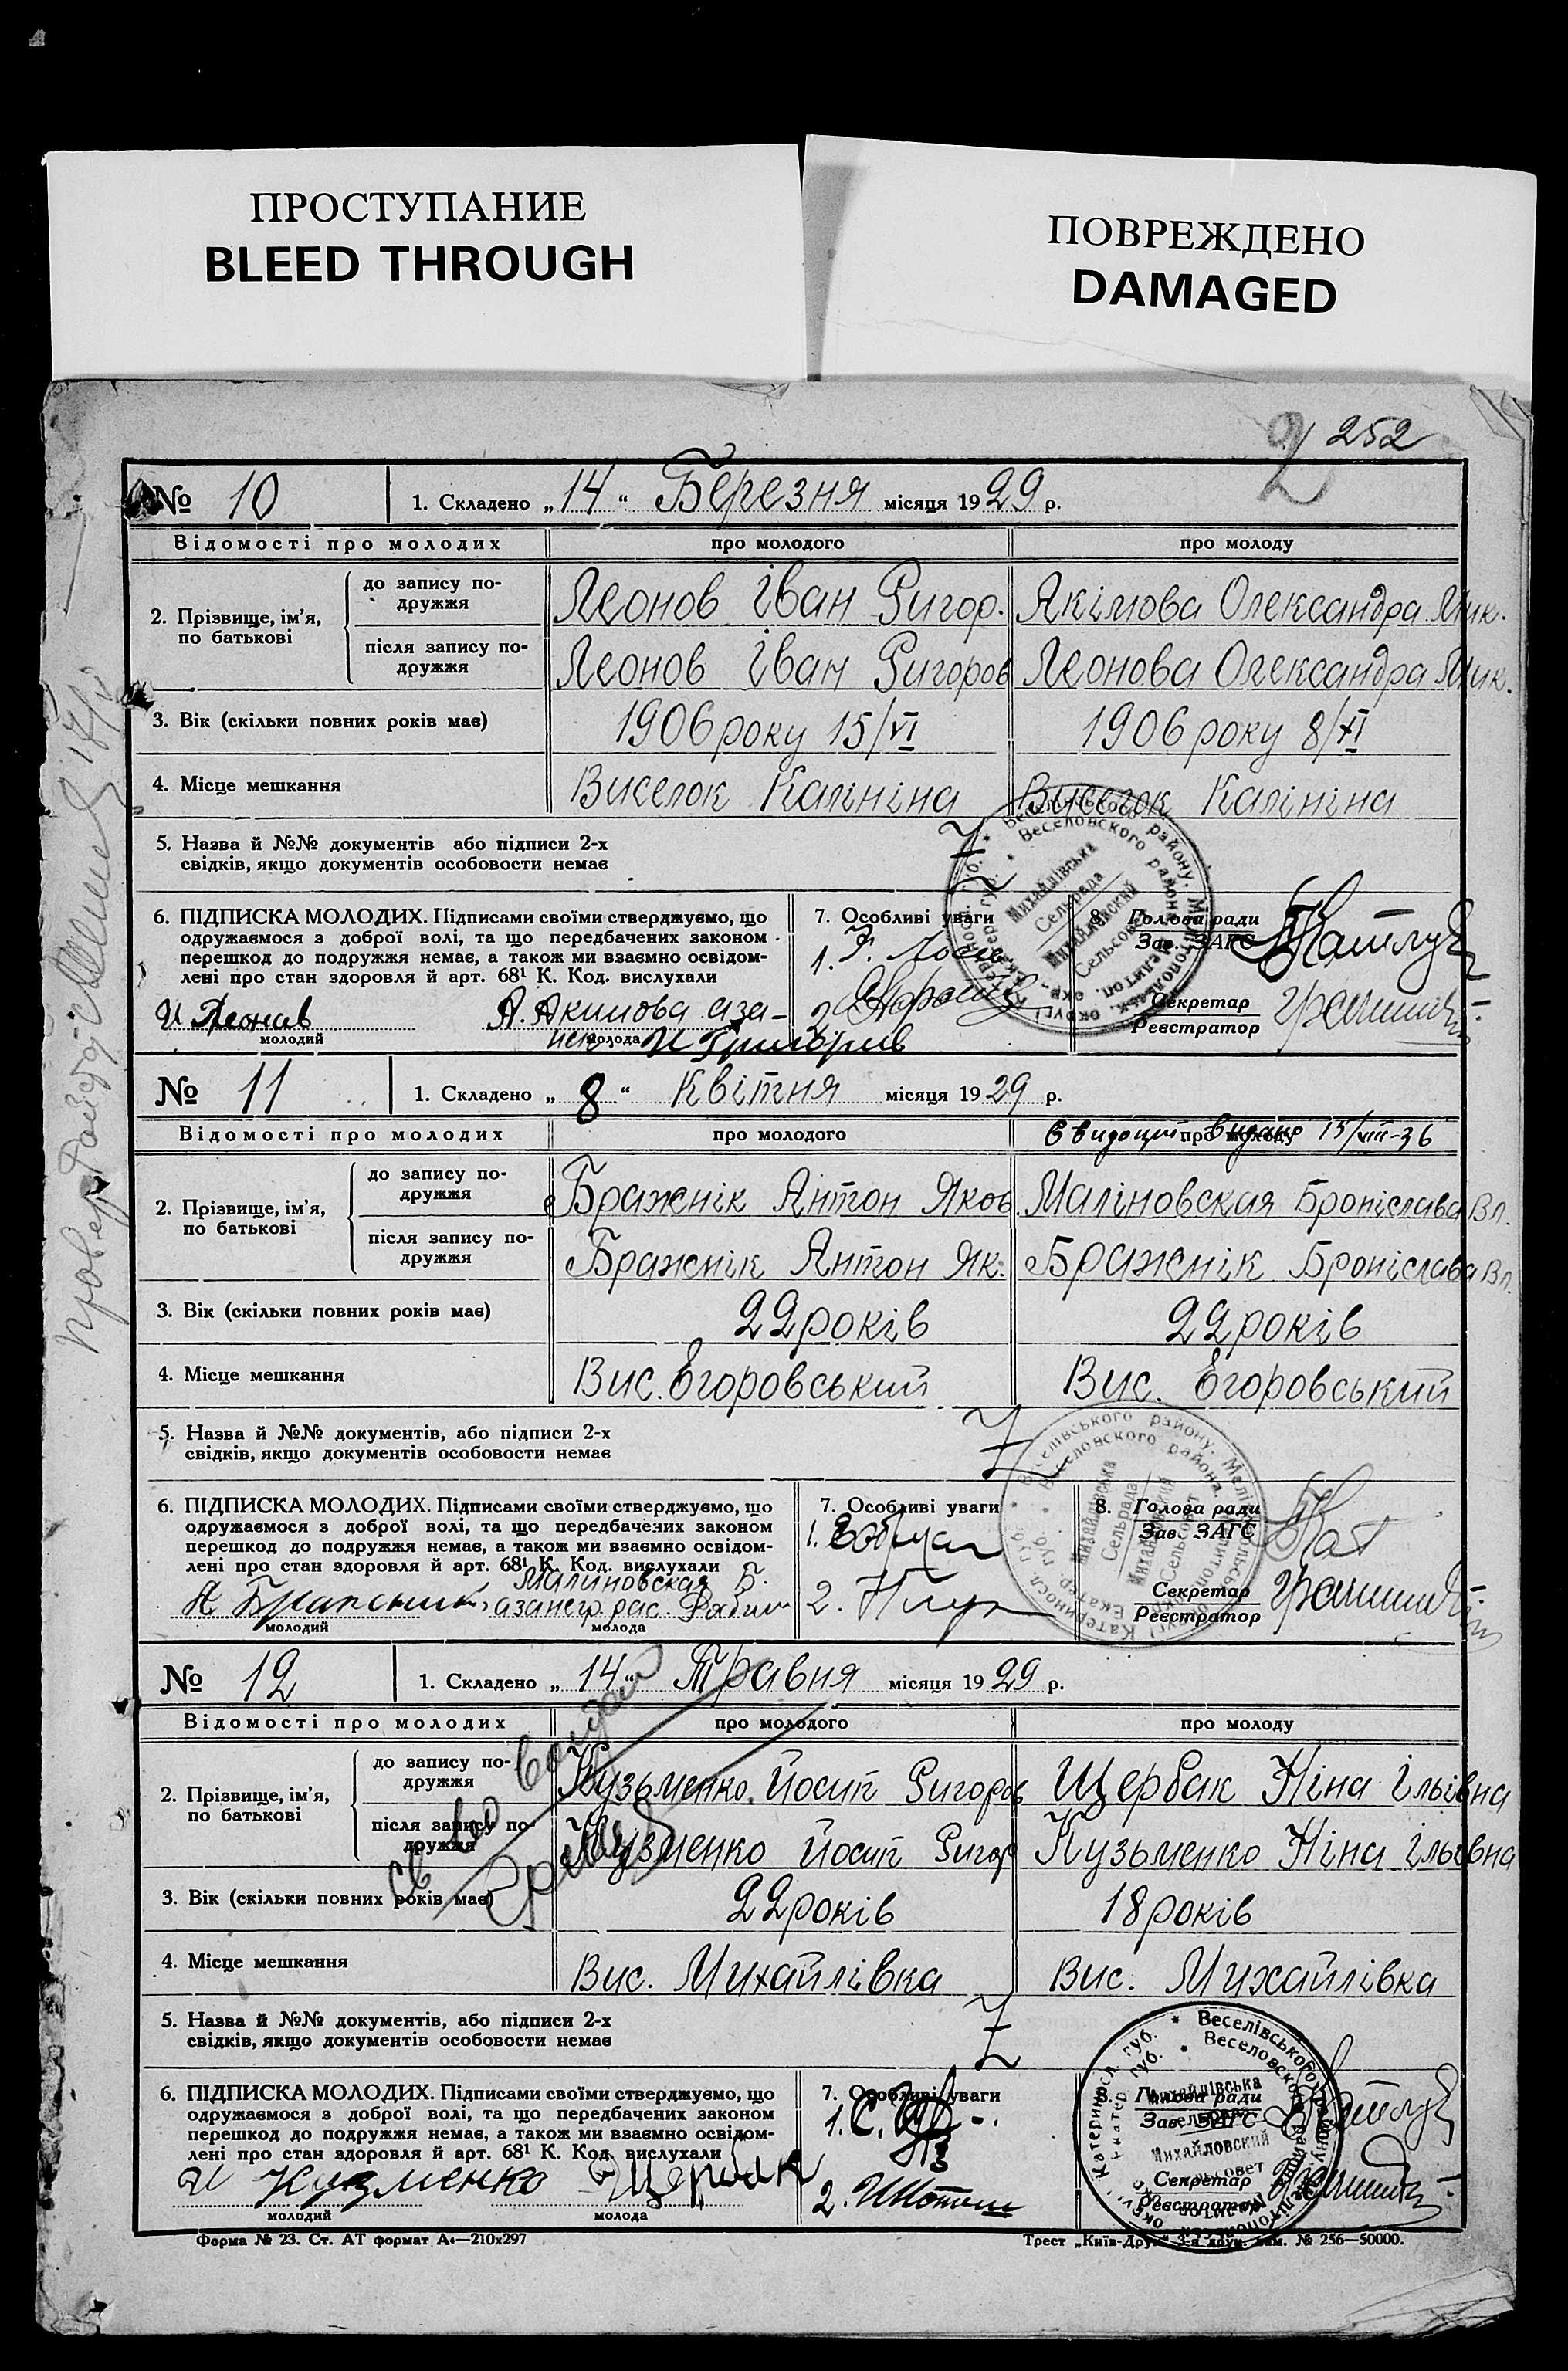 ПРОСТУПАНИЕ
BLEED THROUGH
ПОВРЕЖДЕНО
DAMAGED
252
№ 10 1. Складено „14“ Березня місяця 1929 р.
Відомості про молодих про молодого про молоду
2. Прізвище, ім'я, по батькові
до запису подружжя Леонов Іван Ригор. Якімова Олександра Мик.
після запису подружжя Леонов Іван Ригоров Леонова Олександра Мик.
3. Вік (скільки повних років має) 1906 року 15/VI 1906 року 8/XI
4. Місце мешкання Виселок Калініна Виселок Калініна
5. Назва й №№ документів або підписи 2-х
свідків, якщо документів особовости немає
6. ПІДПИСКА МОЛОДИХ. Підписами своїми стверджуємо, що
одружаємося з доброї волі, та що передбачених законом
перешкод до подружжя немає, а також ми взаємно освідом-
лені про стан здоровля й арт. 68¹ К. Код. вислухали
И Леонов А. Акимова аза-
молодий молода
7. Особливі уваги
1.
2.
8. Голова ради
Зав. ЗАГС
Секретар
Реєстратор
№ 11 1. Складено „8“ Квітня місяця 1929 р.
Відомості про молодих про молодого про молоду видано 15/VIII-36
2. Прізвище, ім'я, по батькові
до запису подружжя Бражнік Антон Яков. Маліновская Броніслава Вл.
після запису подружжя Бражнік Антон Як. Бражнік Броніслава Вл.
3. Вік (скільки повних років має) 22 років 22 років
4. Місце мешкання Вис. Егоровський Вис. Егоровський
5. Назва й №№ документів, або підписи 2-х
свідків, якщо документів особовости немає
6. ПІДПИСКА МОЛОДИХ. Підписами своїми стверджуємо, що
одружаємося з доброї волі, та що передбачених законом
перешкод до подружжя немає, а також ми взаємно освідом-
лені про стан здоровля й арт. 68¹ К. Код. вислухали
Малиновская Б.
молодий молода
7. Особливі уваги
1.
2.
8. Голова ради
Зав. ЗАГС
Секретар
Реєстратор
№ 12 1. Складено „14“ Травня місяця 1929 р.
Відомості про молодих про молодого про молоду
2. Прізвище, ім'я, по батькові
до запису подружжя Кузьменко Йосип Ригоров Щербак Ніна Ільівна
після запису подружжя Кузменко Йосип Ригор Кузьменко Ніна Ільівна
3. Вік (скільки повних років має) 22 років 18 років
4. Місце мешкання Вис. Михайлівка Вис. Михайлівка
5. Назва й №№ документів, або підписи 2-х
свідків, якщо документів особовости немає
6. ПІДПИСКА МОЛОДИХ. Підписами своїми стверджуємо, що
одружаємося з доброї волі, та що передбачених законом
перешкод до подружжя немає, а також ми взаємно освідом-
лені про стан здоровля й арт. 68¹ К. Код. вислухали
И Кузменко Щербак
молодий молода
7. Особливі уваги
1.
2.
8. Голова ради
Зав. ЗАГС
Секретар
Реєстратор
Михайлівська
Сельрада
Михайловский
Сельсовет
Форма № 23. Ст. АТ формат А4—210х297
Трест „Київ-Друк“ 3-я друк. Зам. № 256—50000.